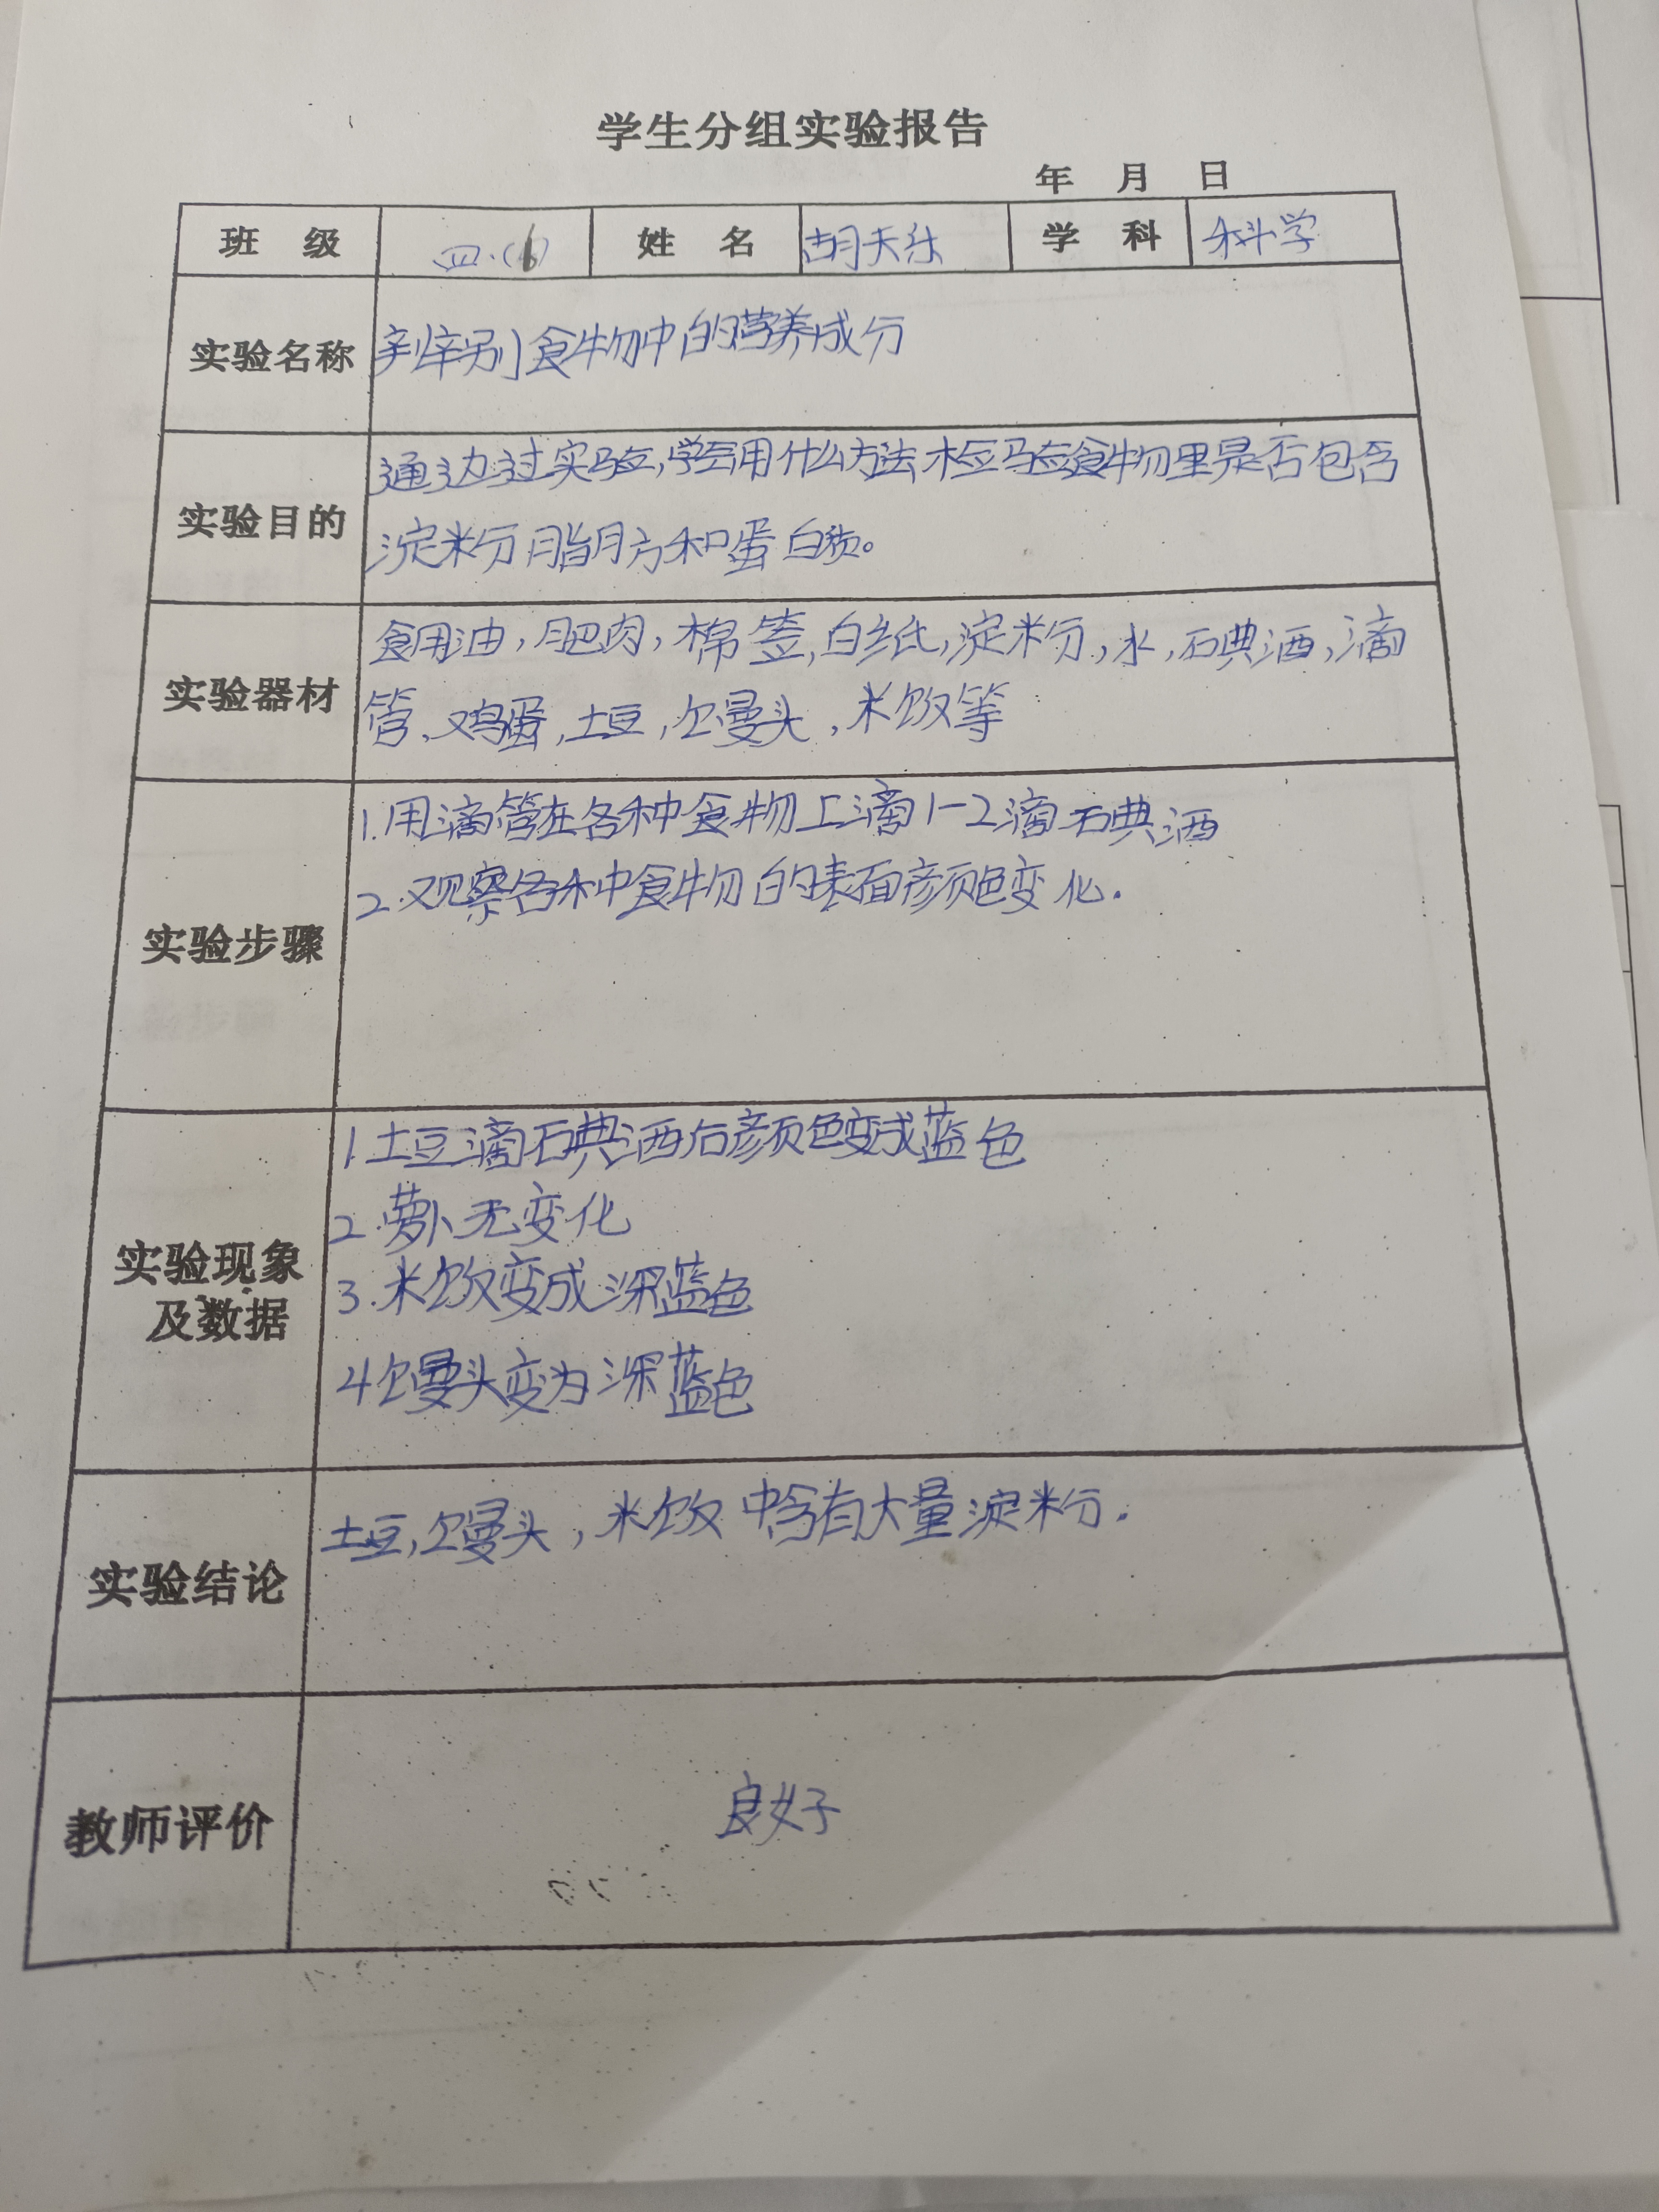 学生分组实验报告
年 月 日
班 级 四.(6) 姓 名 胡天乐 学 科 科学
实验名称 辨别食物中的营养成分
实验目的 通过实验,学会用什么方法检验食物里是否包含
淀粉脂肪和蛋白质。
实验器材 食用油,肥肉,棉签,白纸,淀粉,水,碘酒,滴
管、鸡蛋,土豆,馒头,米饭等
实验步骤 1.用滴管在各种食物上滴1-2滴碘酒
2.观察各种食物的表面颜色变化.
实验现象
及数据
1.土豆滴碘酒后颜色变成蓝色
2.萝卜无变化
3.米饭变成深蓝色
4馒头变为深蓝色
实验结论 土豆,馒头,米饭中含有大量淀粉.
教师评价 良好